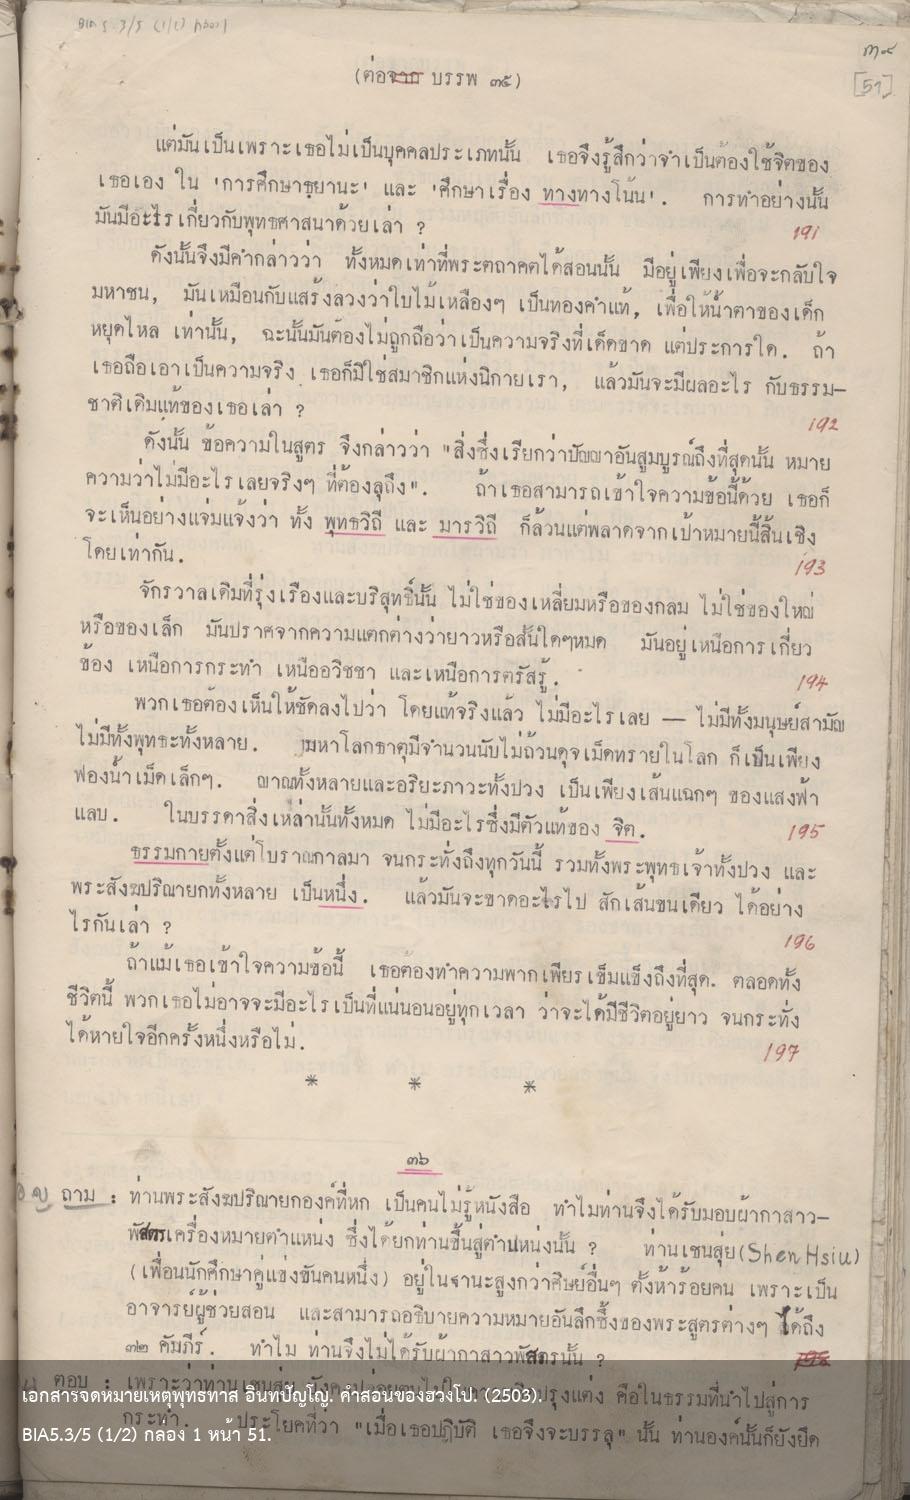 BIA 5.3/5 (1/2) กล่อง 1
๓๙
[51]
(ต่อจาก บรรพ ๓๕)
แต่มันเป็นเพราะเธอไม่เป็นบุคคลประเภทนั้น เธอจึงรู้สึกว่าจำเป็นต้องใช้จิตของ
เธอเอง ใน 'การศึกษาธฺยานะ' และ 'ศึกษาเรื่อง ทางทางโน้น'. การทำอย่างนั้น
มันมีอะไรเกี่ยวกับพุทธศาสนาด้วยเล่า ?
191
ดังนั้นจึงมีคำกล่าวว่า ทั้งหมดเท่าที่พระตถาคตได้สอนนั้น มีอยู่เพียงเพื่อจะกลับใจ
มหาชน, มันเหมือนกับแสร้งลวงว่าใบไม้เหลืองๆ เป็นทองคำแท้, เพื่อให้น้ำตาของเด็ก
หยุดไหล เท่านั้น, ฉะนั้นมันต้องไม่ถูกถือว่าเป็นความจริงที่เด็ดขาด แต่ประการใด. ถ้า
เธอถือเอาเป็นความจริง เธอก็มิใช่สมาชิกแห่งนิกายเรา, แล้วมันจะมีผลอะไร กับธรรม–
ชาติเดิมแท้ของเธอเล่า ?
192
ดังนั้น ข้อความในสูตร จึงกล่าวว่า "สิ่งซึ่งเรียกว่าปัญญาอันสมบูรณ์ถึงที่สุดนั้น หมาย
ความว่าไม่มีอะไรเลยจริงๆ ที่ต้องลุถึง". ถ้าเธอสามารถเข้าใจความข้อนี้ด้วย เธอก็
จะเห็นอย่างแจ่มแจ้งว่า ทั้ง พุทธวิถี และ มารวิถี ก็ล้วนแต่พลาดจากเป้าหมายนี้สิ้นเชิง
โดยเท่ากัน.
193
จักรวาลเดิมที่รุ่งเรืองและบริสุทธิ์นั้น ไม่ใช่ของเหลี่ยมหรือของกลม ไม่ใช่ของใหญ่
หรือของเล็ก มันปราศจากความแตกต่างว่ายาวหรือสั้นใดๆหมด มันอยู่เหนือการเกี่ยว
ข้อง เหนือการกระทำ เหนืออวิชชา และเหนือการตรัสรู้.
194
พวกเธอต้องเห็นให้ชัดลงไปว่า โดยแท้จริงแล้ว ไม่มีอะไรเลย — ไม่มีทั้งมนุษย์สามัญ
ไม่มีทั้งพุทธะทั้งหลาย. มหาโลกธาตุมีจำนวนนับไม่ถ้วนดุจเม็ดทรายในโลก ก็เป็นเพียง
ฟองน้ำเม็ดเล็กๆ. ญาณทั้งหลายและอริยะภาวะทั้งปวง เป็นเพียงเส้นแฉกๆ ของแสงฟ้า
แลบ. ในบรรดาสิ่งเหล่านั้นทั้งหมด ไม่มีอะไรซึ่งมีตัวแท้ของ จิต.
195
ธรรมกายตั้งแต่โบราณกาลมา จนกระทั่งถึงทุกวันนี้ รวมทั้งพระพุทธเจ้าทั้งปวง และ
พระสังฆปริณายกทั้งหลาย เป็นหนึ่ง. แล้วมันจะขาดอะไรไป สักเส้นขนเดียว ได้อย่าง
ไรกันเล่า ?
196
ถ้าแม้เธอเข้าใจความข้อนี้ เธอต้องทำความพากเพียรเข็มแข็งถึงที่สุด. ตลอดทั้ง
ชีวิตนี้ พวกเธอไม่อาจจะมีอะไรเป็นที่แน่นอนอยู่ทุกเวลา ว่าจะได้มีชีวิตอยู่ยาว จนกระทั่ง
ได้หายใจอีกครั้งหนึ่งหรือไม่.
197
* * *
๓๖
ถาม : ท่านพระสังฆปริณายกองค์ที่หก เป็นคนไม่รู้หนังสือ ทำไมท่านจึงได้รับมอบผ้ากาสาว–
พัสตรเครื่องหมายตำแหน่ง ซึ่งได้ยกท่านขึ้นสู่ตำแหน่งนั้น ? ท่านเชนสุ่ย(Shen Hsiu)
(เพื่อนนักศึกษาคู่แข่งขันคนหนึ่ง) อยู่ในฐานะสูงกว่าศิษย์อื่นๆ ตั้งห้าร้อยคน เพราะเป็น
อาจารย์ผู้ช่วยสอน และสามารถอธิบายความหมายอันลึกซึ้งของพระสูตรต่างๆ ได้ถึง
๓๒ คัมภีร์. ทำไม ท่านจึงไม่ได้รับผ้ากาสาวพัสตรนั้น ?
198
ตอบ : เพราะว่าท่านเชนสุ่ย ยังคงปล่อยตนไปใน ปรุงแต่ง คือในธรรมที่นำไปสู่การ
กระทำ. ประโยคที่ว่า "เมื่อเธอปฏิบัติ เธอจึงจะบรรลุ" นั้น ท่านองค์นั้นก็ยังยึด
เอกสารจดหมายเหตุพุทธทาส อินทปัญโญ. คำสอนของฮวงโป. (2503).
BIA5.3/5 (1/2) กล่อง 1 หน้า 51.